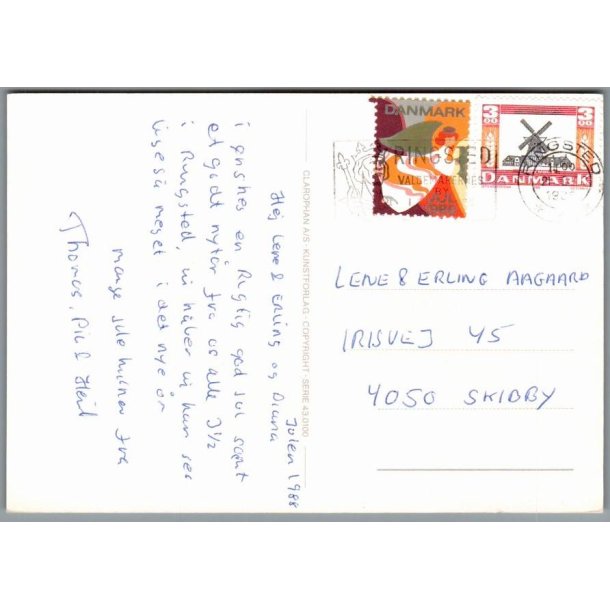 Julen 1988
Hej Lene & Erling og Diana
i ønskes en Rigtig god jul samt
et godt nytår fra os alle 3½
i Ringsted, vi håber vi kan ses
ligeså meget i det nye år
mange julehilsner fra
Thomas, Pia &
CLAROPHAN A/S · KUNSTFORLAG · COPYRIGHT · SERIE 43.0100
DANMARK
3 00
3 00
DANMARK
RINGSTED
VALDEMARERNES
BY
RINGSTED
LENE & ERLING AAGAARD
IRISVEJ 45
4050 SKIBBY